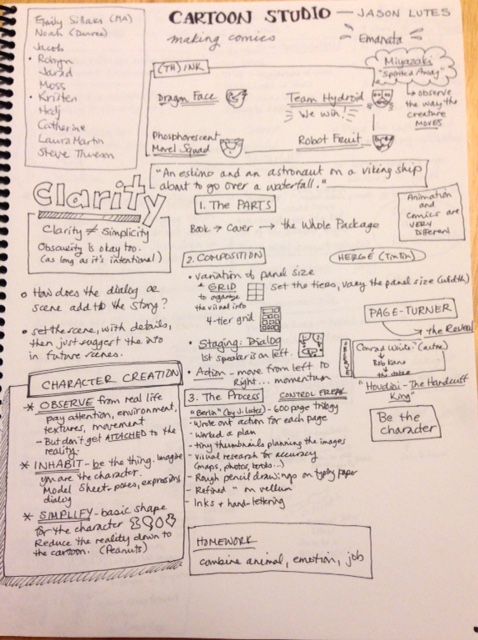 Emily Sillars (MA)
Noah
Jacob
• Robyn
Jarad
Moss
• Kristen
Hedj
Catherine
Laura Martin
Steve Thueson
CARTOON STUDIO — JASON LUTES
making comics
Emanata
(TH)INK
Dragon Face
Team Hydroid
We win!
Phosphorescent
Morel Squad
Robot Fruit
Miyazaki
"Spirited Away"
→ OBSERVE
the way the
creature
MOVES
"An eskimo and an astronaut on a viking ship
about to go over a waterfall."
Clarity
Clarity ≠ Simplicity
Obscurity is okay too.
(as long as it's intentional)
1. The PARTS
Book → Cover → the Whole Package
Animation
and
Comics are
VERY
Different
2. COMPOSITION
HERGÉ (TinTin)
• variation of panel size
* GRID
to organize
the visual info
set the tiers, vary the panel size (width)
4-tier grid
• Staging: Dialog
1st speaker is on left.
• Action - move from left to
Right... momentum
• How does the dialog or
scene add to the story?
• set the scene, with details,
then just suggest the info
in future scenes.
PAGE-TURNER
→ the Reveal
Conrad Veidt (actor)
→ Bob Kane
→ the Joker
"Houdini - The Handcuff
King"
Be the
character
CHARACTER CREATION
* OBSERVE from real life
pay attention, environment,
textures, movement
- But don't get ATTACHED to the
reality.
* INHABIT - be the thing. Imagine
you are the character.
Model Sheet - poses, expressions
dialog
* SIMPLIFY - basic shape
for the character
Reduce the reality down to
the cartoon. (Peanuts)
3. The Process
CONTROL FREAK
"Berlin" (by J. Lutes) - 600 page trilogy
- Wrote out action for each page
- Worked a plan
- tiny thumbnails planning the images
- Visual research for accuracy
(maps, photos, books...)
- Rough pencil drawings on typing paper
- Refined " on vellum
- Inks + hand-lettering
HOMEWORK
combine animal, emotion, job